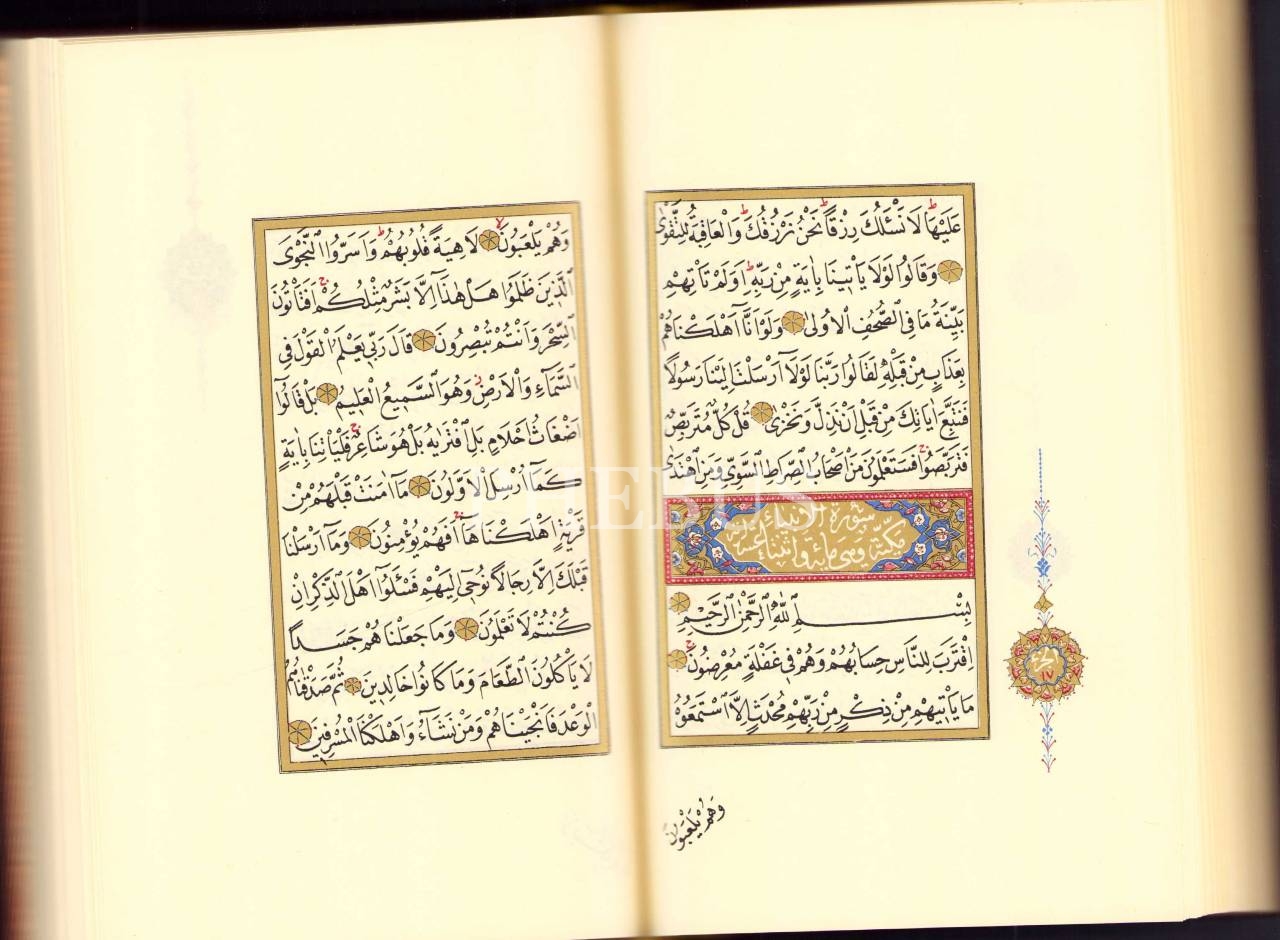 عَلَيْهَا لَا نَسْـَٔلُكَ رِزْقًا نَحْنُ نَرْزُقُكَ وَالْعَاقِبَةُ لِلتَّقْوٰى
وَقَالُوا لَوْلَا يَاْتِينَا بِاٰيَةٍ مِنْ رَبِّهِ اَوَلَمْ تَاْتِهِمْ
بَيِّنَةُ مَا فِى الصُّحُفِ الْاُولٰى وَلَوْ اَنَّٓا اَهْلَكْنَاهُمْ
بِعَذَابٍ مِنْ قَبْلِهِ لَقَالُوا رَبَّنَا لَوْلَٓا اَرْسَلْتَ اِلَيْنَا رَسُولًا
فَنَتَّبِعَ اٰيَاتِكَ مِنْ قَبْلِ اَنْ نَذِلَّ وَنَخْزٰى قُلْ كُلٌّ مُتَرَبِّصٌ
فَتَرَبَّصُوا فَسَتَعْلَمُونَ مَنْ اَصْحَابُ الصِّرَاطِ السَّوِيِّ وَمَنِ اهْتَدٰى
سورة الانبياء
مكية وهى مائة واثنتا عشرة اية
بِسْمِ اللّٰهِ الرَّحْمٰنِ الرَّحِيمِ
اِقْتَرَبَ لِلنَّاسِ حِسَابُهُمْ وَهُمْ فِى غَفْلَةٍ مُعْرِضُونَ
مَا يَاْتِيهِمْ مِنْ ذِكْرٍ مِنْ رَبِّهِمْ مُحْدَثٍ اِلَّا اسْتَمَعُوهُ
وَهُمْ يَلْعَبُونَ
الجزء
١٧
وَهُمْ يَلْعَبُونَ لَاهِيَةً قُلُوبُهُمْ وَاَسَرُّوا النَّجْوَى
الَّذِينَ ظَلَمُوا هَلْ هٰذَٓا اِلَّا بَشَرٌ مِثْلُكُمْ اَفَتَاْتُونَ
السِّحْرَ وَاَنْتُمْ تُبْصِرُونَ قَالَ رَبِّى يَعْلَمُ الْقَوْلَ فِى
السَّمَٓاءِ وَالْاَرْضِ وَهُوَ السَّمِيعُ الْعَلِيمُ بَلْ قَالُٓوا
اَضْغَاثُ اَحْلَامٍ بَلِ افْتَرٰيهُ بَلْ هُوَ شَاعِرٌ فَلْيَاْتِنَا بِاٰيَةٍ
كَمَٓا اُرْسِلَ الْاَوَّلُونَ مَٓا اٰمَنَتْ قَبْلَهُمْ مِنْ
قَرْيَةٍ اَهْلَكْنَاهَا اَفَهُمْ يُؤْمِنُونَ وَمَٓا اَرْسَلْنَا
قَبْلَكَ اِلَّا رِجَالًا نُوحِٓى اِلَيْهِمْ فَسْـَٔلُٓوا اَهْلَ الذِّكْرِ اِنْ
كُنْتُمْ لَا تَعْلَمُونَ وَمَا جَعَلْنَاهُمْ جَسَدًا
لَا يَاْكُلُونَ الطَّعَامَ وَمَا كَانُوا خَالِدِينَ ثُمَّ صَدَقْنَاهُمُ
الْوَعْدَ فَاَنْجَيْنَاهُمْ وَمَنْ نَشَٓاءُ وَاَهْلَكْنَا الْمُسْرِفِينَ
THEBUS